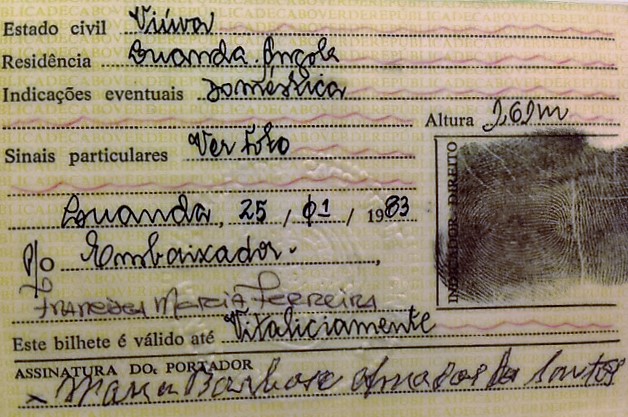 Estado civil Viúva
Residência Luanda. Angola
Indicações eventuais Doméstica
Altura 1,61m
Sinais particulares Ver foto
Luanda, 25 / 01 / 1983
P/o Embaixador.
Ferreira
Este bilhete é válido até Vitaliciamente
INDICADOR DIREITO
ASSINATURA DO PORTADOR
Maria Barbosa Amador dos Santos